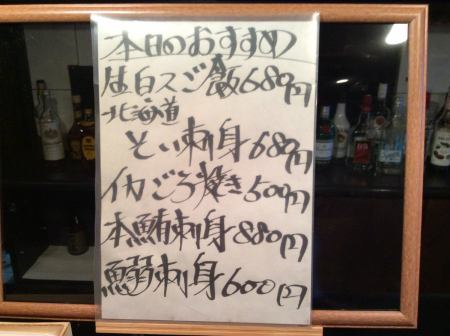 本日のおすすめ
生白スご飯680円
北海道
そい刺身680円
イカごろ焼き500円
本鮪刺身880円
鰯刺身600円